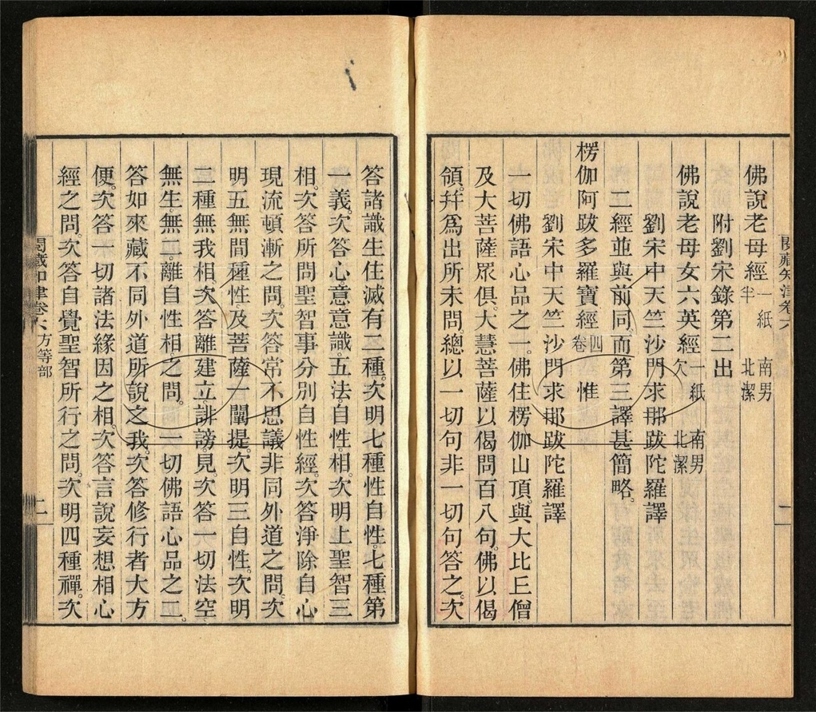 閱藏知津卷六
佛說老母經半一紙 南男北潔
附劉宋錄第二出
佛說老母女六英經欠一紙 南男北潔
劉宋中天竺沙門求那跋陀羅譯
二經並與前同。而第三譯甚簡略。
楞伽阿跋多羅寶經四卷 惟
劉宋中天竺沙門求那跋陀羅譯
一切佛語心品之一。佛住楞伽山頂。與大比丘僧
及大菩薩眾俱。大慧菩薩以偈問百八句。佛以偈
領。幷爲出所未問。總以一切句非一切句答之。次
答諸識生住滅有二種。次明七種性自性。七種第
一義。次答心意意識。五法自性相。次明上聖智三
相。次答所問聖智事分別自性經。次答淨除自心
現流頓漸之問。次答常不思議非同外道之問。次
明五無間種性及菩薩一闡提。次明三自性。次明
二種無我相。次答離建立誹謗見。次答一切法空
無生無二。離自性相之問。 一切佛語心品之二。
答如來藏不同外道所說之我。次答修行者大方
便。次答一切諸法緣因之相。次答言說妄想相心
經之問。次答自覺聖智所行之問。次明四種禪。次
閱藏知津卷六 方等部 二